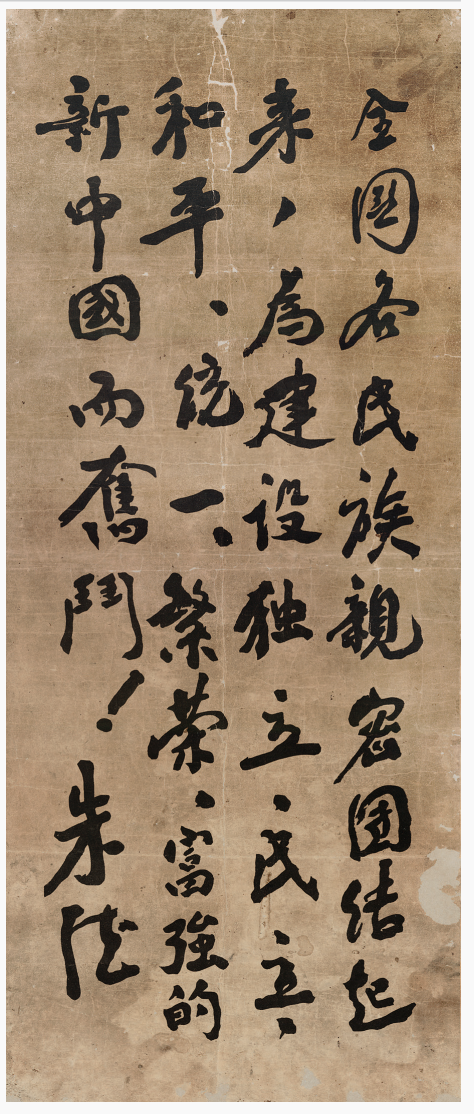 全國各民族親密团结起
来，為建设独立、民立、
和平、統一、繁荣、富強的
新中國而奮鬥！朱德